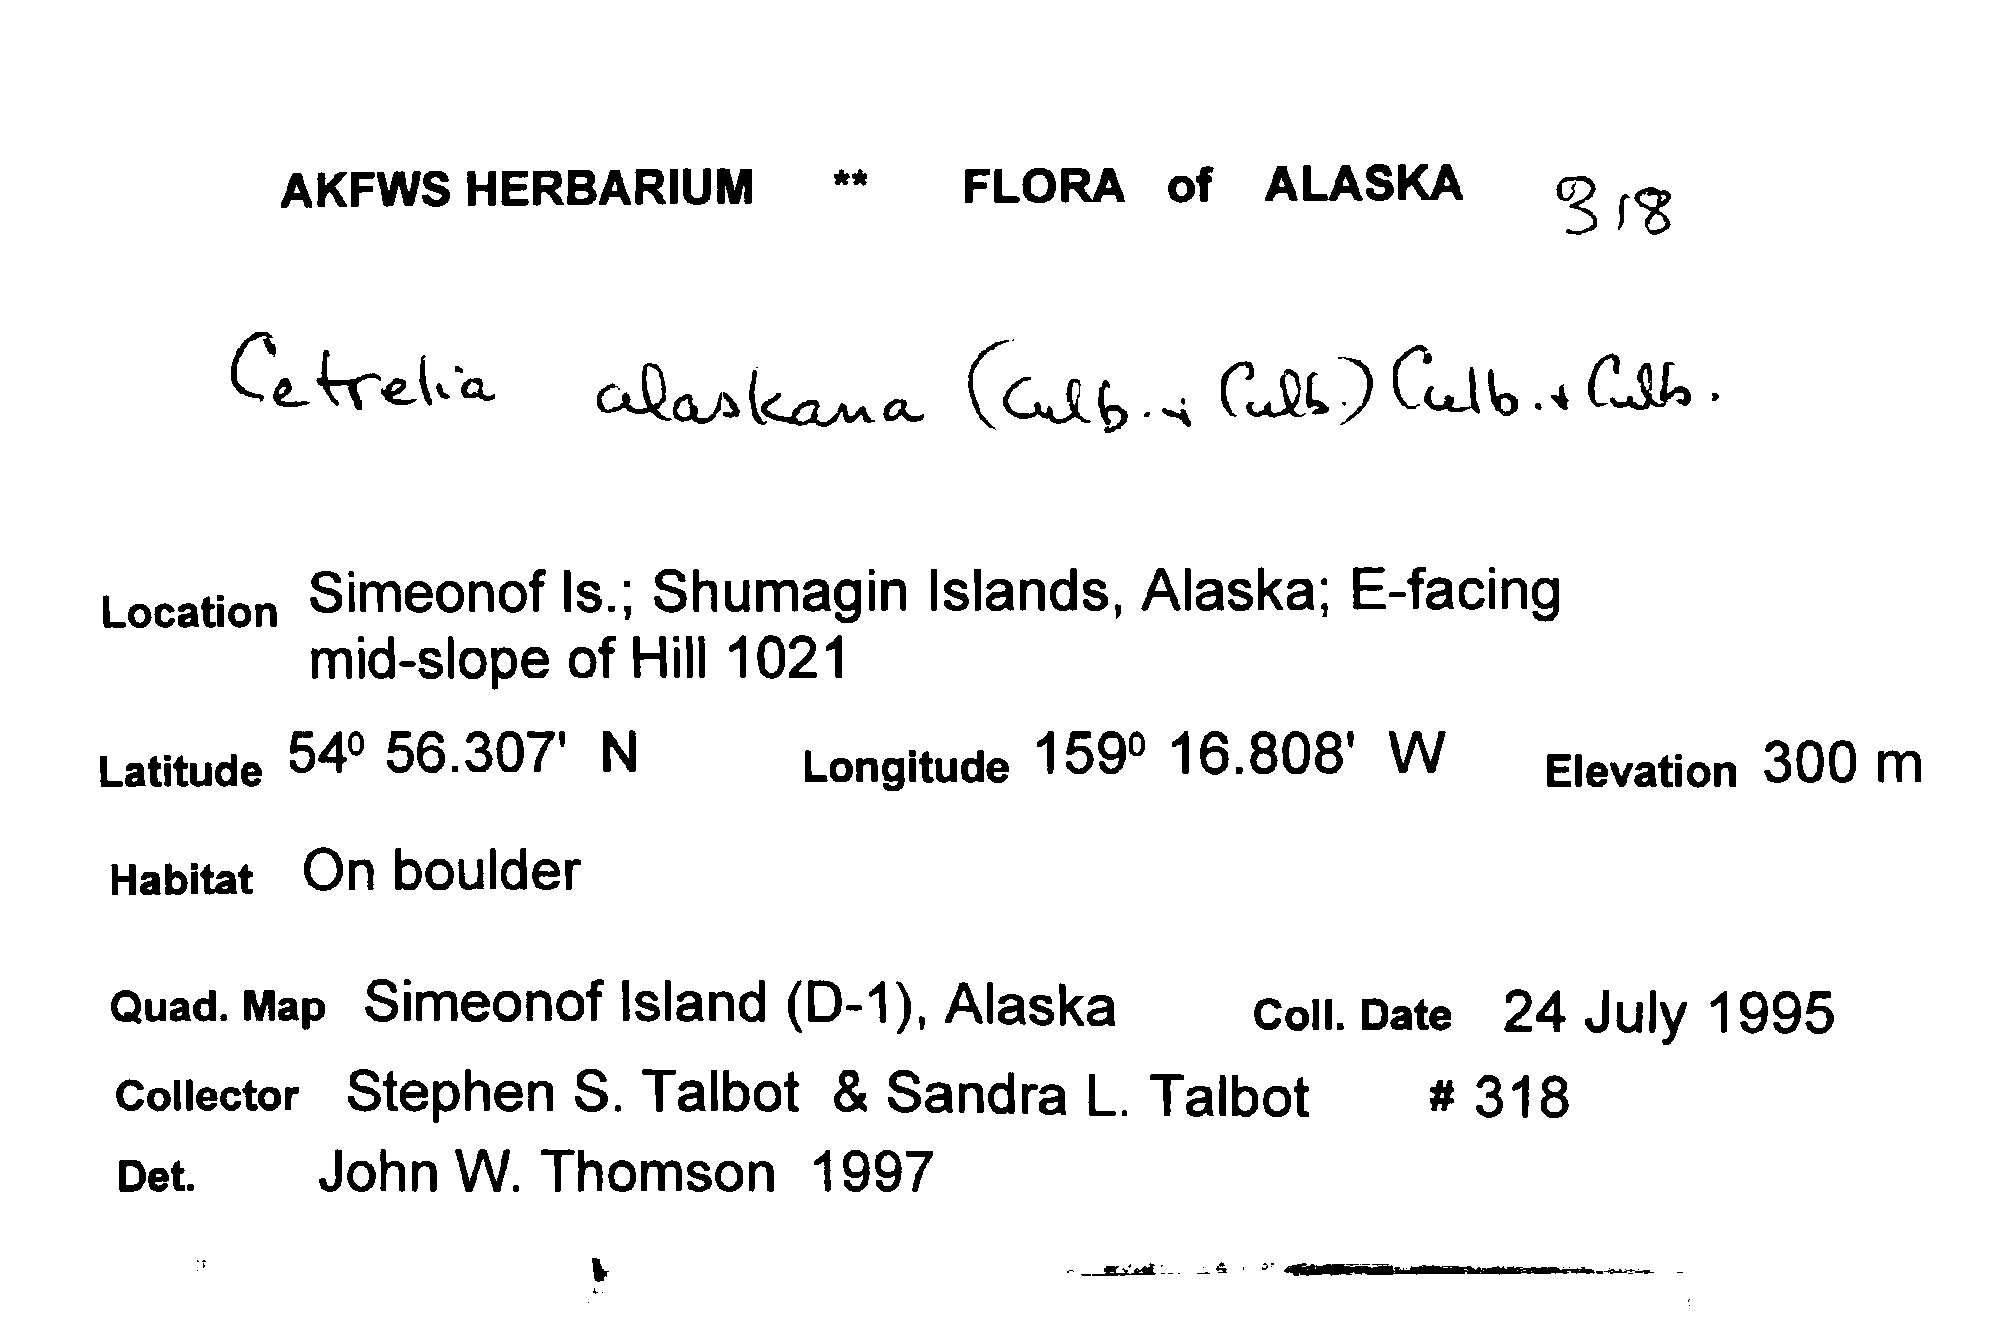 AKFWS HERBARIUM ** FLORA of ALASKA 318
Cetrelia alaskana (Culb. + Culb.) Culb. + Culb.
Location Simeonof Is.; Shumagin Islands, Alaska; E-facing
mid-slope of Hill 1021
Latitude 54º 56.307' N Longitude 159º 16.808' W Elevation 300 m
Habitat On boulder
Quad. Map Simeonof Island (D-1), Alaska Coll. Date 24 July 1995
Collector Stephen S. Talbot & Sandra L. Talbot # 318
Det. John W. Thomson 1997